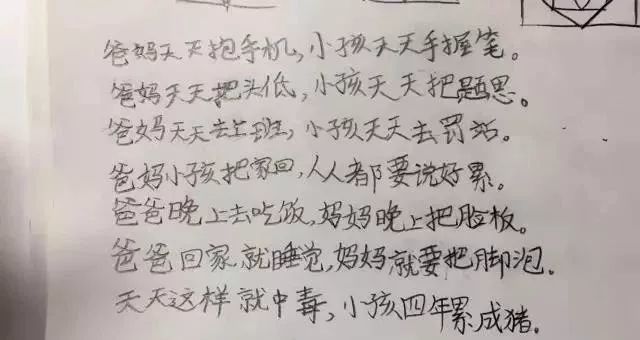 爸妈天天抱手机,小孩天天手握笔。
爸妈天天把头低,小孩天天把题思。
爸妈天天去上班,小孩天天去罚站。
爸妈小孩把家回,人人都要说好累。
爸爸晚上去吃饭,妈妈晚上把脸板。
爸爸回家就睡觉,妈妈就要把脚泡。
天天这样就中毒,小孩四年累成猪。